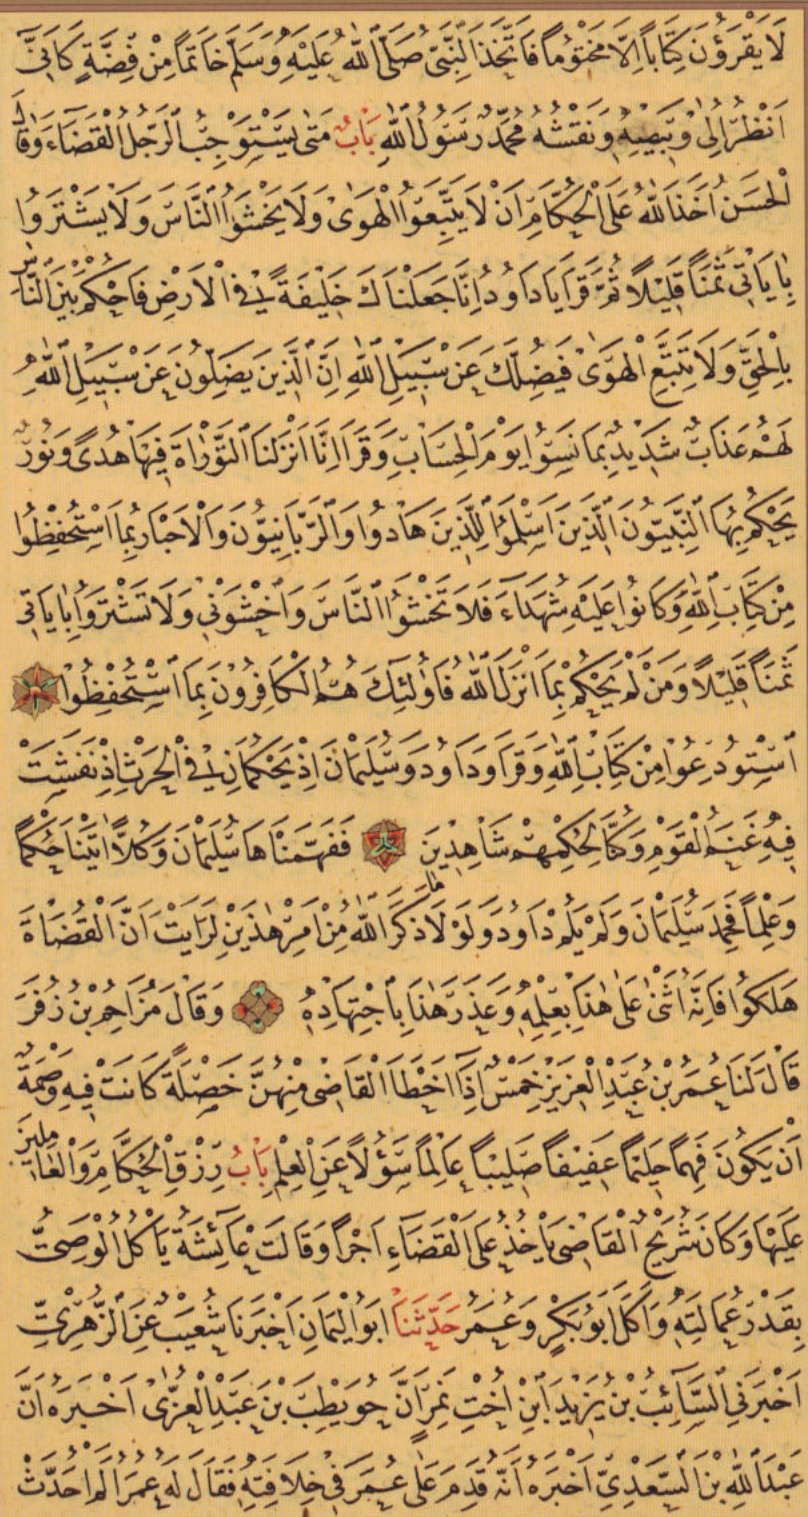 لَا يَقْرَؤُنَ كِتَابًا اِلَّا مَخْتُومًا فَاتَّخَذَ النَّبِيُّ صَلَّى اللّٰهُ عَلَيْهِ وَسَلَّمَ خَاتَمًا مِنْ فِضَّةٍ كَاَنِّي
اَنْظُرُ اِلٰى وَبِيصِهِ وَنَقْشُهُ مُحَمَّدٌ رَسُولُ اللّٰهِ بَابُ مَتٰى يَسْتَوْجِبُ الرَّجُلُ الْقَضَاءَ وَقَالَ
الْحَسَنُ اَخَذَ اللّٰهُ عَلَى الْحُكَّامِ اَنْ لَا يَتَّبِعُوا الْهَوٰى وَلَا يَخْشَوُا النَّاسَ وَلَا يَشْتَرُوا
بِاٰيَاتِى ثَمَنًا قَلِيْلًا ثُمَّ قَرَاَ يَا دَاوُدُ اِنَّا جَعَلْنَاكَ خَلِيفَةً فِى الْاَرْضِ فَاحْكُمْ بَيْنَ النَّاسِ
بِالْحَقِّ وَلَا تَتَّبِعِ الْهَوٰى فَيُضِلَّكَ عَنْ سَبِيلِ اللّٰهِ اِنَّ الَّذِينَ يَضِلُّونَ عَنْ سَبِيلِ اللّٰهِ
لَهُمْ عَذَابٌ شَدِيدٌ بِمَا نَسُوا يَوْمَ الْحِسَابِ وَقَرَاَ اِنَّا اَنْزَلْنَا التَّوْرٰاةَ فِيهَا هُدًى وَنُورٌ
يَحْكُمُ بِهَا النَّبِيُّونَ الَّذِينَ اَسْلَمُوا لِلَّذِينَ هَادُوا وَالرَّبَّانِيُّونَ وَالْاَحْبَارُ بِمَا اسْتُحْفِظُوا
مِنْ كِتَابِ اللّٰهِ وَكَانُوا عَلَيْهِ شُهَدَاءَ فَلَا تَخْشَوُا النَّاسَ وَاخْشَوْنِى وَلَا تَشْتَرُوا بِاٰيَاتِى
ثَمَنًا قَلِيْلًا وَمَنْ لَمْ يَحْكُمْ بِمَا اَنْزَلَ اللّٰهُ فَاُولٰئِكَ هُمُ الْكَافِرُونَ بِمَا اسْتُحْفِظُوا
اسْتُودِعُوا مِنْ كِتَابِ اللّٰهِ وَقَرَاَ وَدَاوُدَ وَسُلَيْمَانَ اِذْ يَحْكُمَانِ فِى الْحَرْثِ اِذْ نَفَشَتْ
فِيهِ غَنَمُ الْقَوْمِ وَكُنَّا لِحُكْمِهِمْ شَاهِدِينَ فَفَهَّمْنَاهَا سُلَيْمَانَ وَكُلًّا اٰتَيْنَا حُكْمًا
وَعِلْمًا فَحَمِدَ سُلَيْمَانَ وَلَمْ يَلُمْ دَاوُدَ وَلَوْ لَا مَا ذَكَرَ اللّٰهُ مِنْ اَمْرِ هٰذَيْنِ لَرَاَيْتَ اَنَّ الْقُضَاةَ
هَلَكُوا فَاِنَّهُ اَثْنٰى عَلٰى هٰذَا بِعِلْمِهِ وَعَذَرَ هٰذَا بِاجْتِهَادِهِ وَقَالَ مُزَاحِمُ بْنُ زُفَرَ
قَالَ لَنَا عُمَرُ بْنُ عَبْدِ الْعَزِيزِ خَمْسٌ اِذَا اَخْطَاَ الْقَاضِى مِنْهُنَّ خَصْلَةً كَانَتْ فِيهِ وَصْمَةٌ
اَنْ يَكُونَ فَهِمًا حَلِيمًا عَفِيفًا صَلِيبًا عَالِمًا سَؤُلًا عَنِ الْعِلْمِ بَابُ رِزْقِ الْحُكَّامِ وَالْعَامِلِينَ
عَلَيْهَا وَكَانَ شُرَيْحٌ الْقَاضِى يَاْخُذُ عَلَى الْقَضَاءِ اَجْرًا وَقَالَتْ عَائِشَةُ يَاْكُلُ الْوَصِىُّ
بِقَدْرِ عُمَالَتِهِ وَاَكَلَ اَبُو بَكْرٍ وَعُمَرُ حَدَّثَنَا اَبُو الْيَمَانِ اَخْبَرَنَا شُعَيْبٌ عَنِ الزُّهْرِىِّ
اَخْبَرَنِى السَّائِبُ بْنُ يَزِيدَ ابْنِ اُخْتِ نَمِرٍ اَنَّ حُوَيْطِبَ بْنَ عَبْدِ الْعُزّٰى اَخْبَرَهُ اَنَّ
عَبْدَ اللّٰهِ بْنَ السَّعْدِىِّ اَخْبَرَهُ اَنَّهُ قَدِمَ عَلٰى عُمَرَ فِى خِلَافَتِهِ فَقَالَ لَهُ عُمَرُ اَلَمْ اُحَدَّثْ